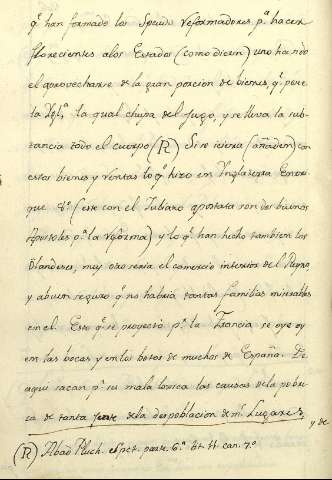 q.e han formado los Pseudo reformadores p.a hacer
florecientes a los Estados (como dicen) uno ha sido
el aprovecharse de la gran porcion de bienes, q.e posee
la Igl.a la qual chupa el jugo, y se lleva la sub-
stancia todo el cuerpo (R) Si se iciera (añaden) con
estos bienes y rentas lo q.e hizo en Inglaterra Enrri-
que 8.o (este con el Juliano apostata son dos buenos
Apostoles p.a la reforma) y lo q.e han hecho tambien los
Olandeses, muy otro seria el comercio interior del Reyno
y a buen seguro q.e no habria tantas familias miserables
en el. Esto q.e se proyectó p.a la Francia se oye oy
en las bocas y en los botos de muchos de España. De
aqui sacan p.r su mala lovica las causas de la pobre-
za de tanta jente de la despoblacion de m.s Lugares, y de
(R) Abad Pluch. espet. parte. 6.a